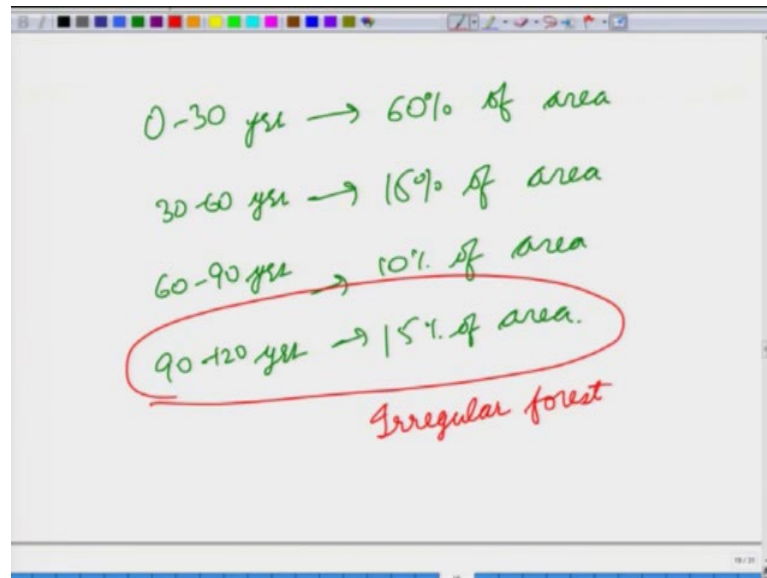 0-30 yrs → 60% of area
30-60 yrs → 15% of area
60-90 yrs → 10% of area
90-120 yrs → 15% of area.
Irregular forest